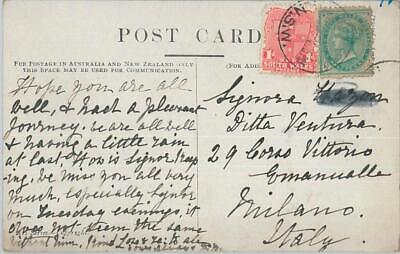 POST CARD
FOR POSTAGE IN AUSTRALIA AND NEW ZEALAND (ONLY)
THIS SPACE MAY BE USED FOR COMMUNICATION.
(FOR ADDRESS
N.S.W.
SOUTH WALES
Hope you are all
well, & had a pleasant
Journey. we are all well
& having a little rain
at last. How is Signor
-ing, we miss you all very
much, especially Signor
on Tuesday evenings, it
does not seem the same
without him, Kind Love to all
Signora
Ditta Ventura.
29 Corso Vittorio
Emanualle
Milano.
Italy.